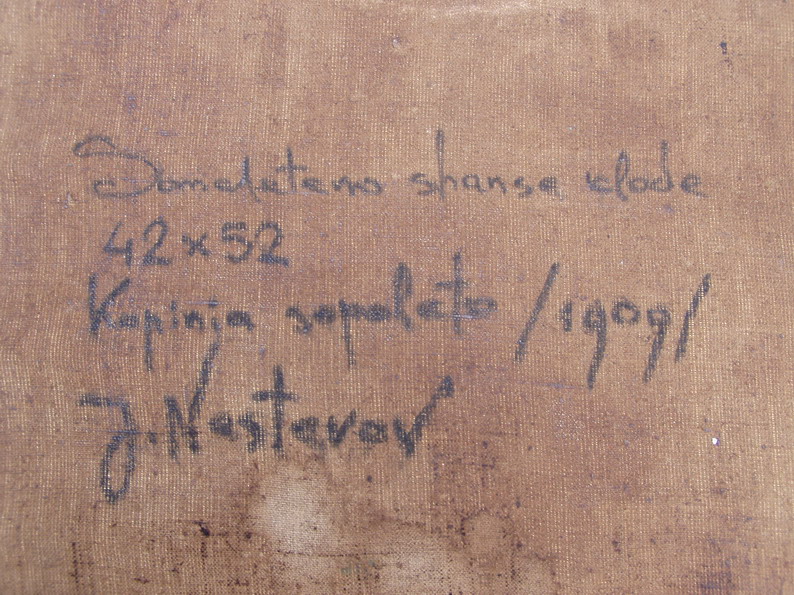 Someleteno shanse klode
42x52
Kopinja sopoleto /1909/
J. Nesterov